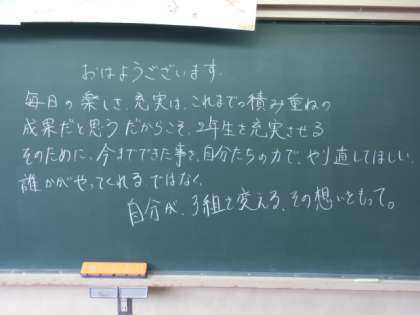 おはようございます.
毎日の楽しさ、充実は、これまでの積み重ねの
成果だと思う だからこそ、2年生を充実させる
そのために、今までできた事を、自分たちの力で、やり直してほしい.
誰かがやってくれるではなく、
自分が、3組を変える、その想いをもって。